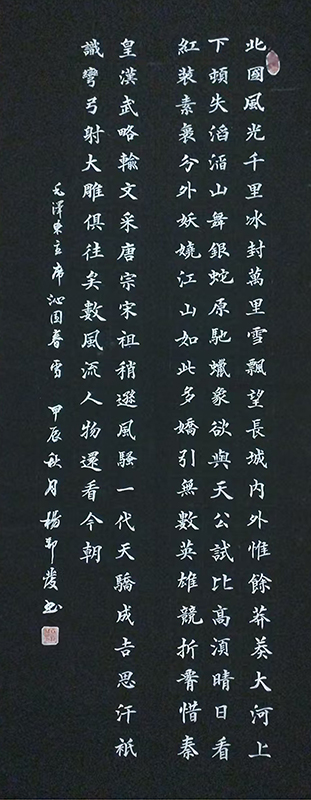 北國風光千里冰封萬里雪飄望長城内外惟餘莽莽大河上
下頓失滔滔山舞銀蛇原馳蠟象欲與天公試比高須晴日看
紅裝素裹分外妖嬈江山如此多嬌引無數英雄競折腰惜秦
皇漢武略輸文采唐宗宋祖稍遜風騷一代天驕成吉思汗祇
識彎弓射大雕俱往矣數風流人物還看今朝
毛澤東主席沁园春雪 甲辰秋月楊书